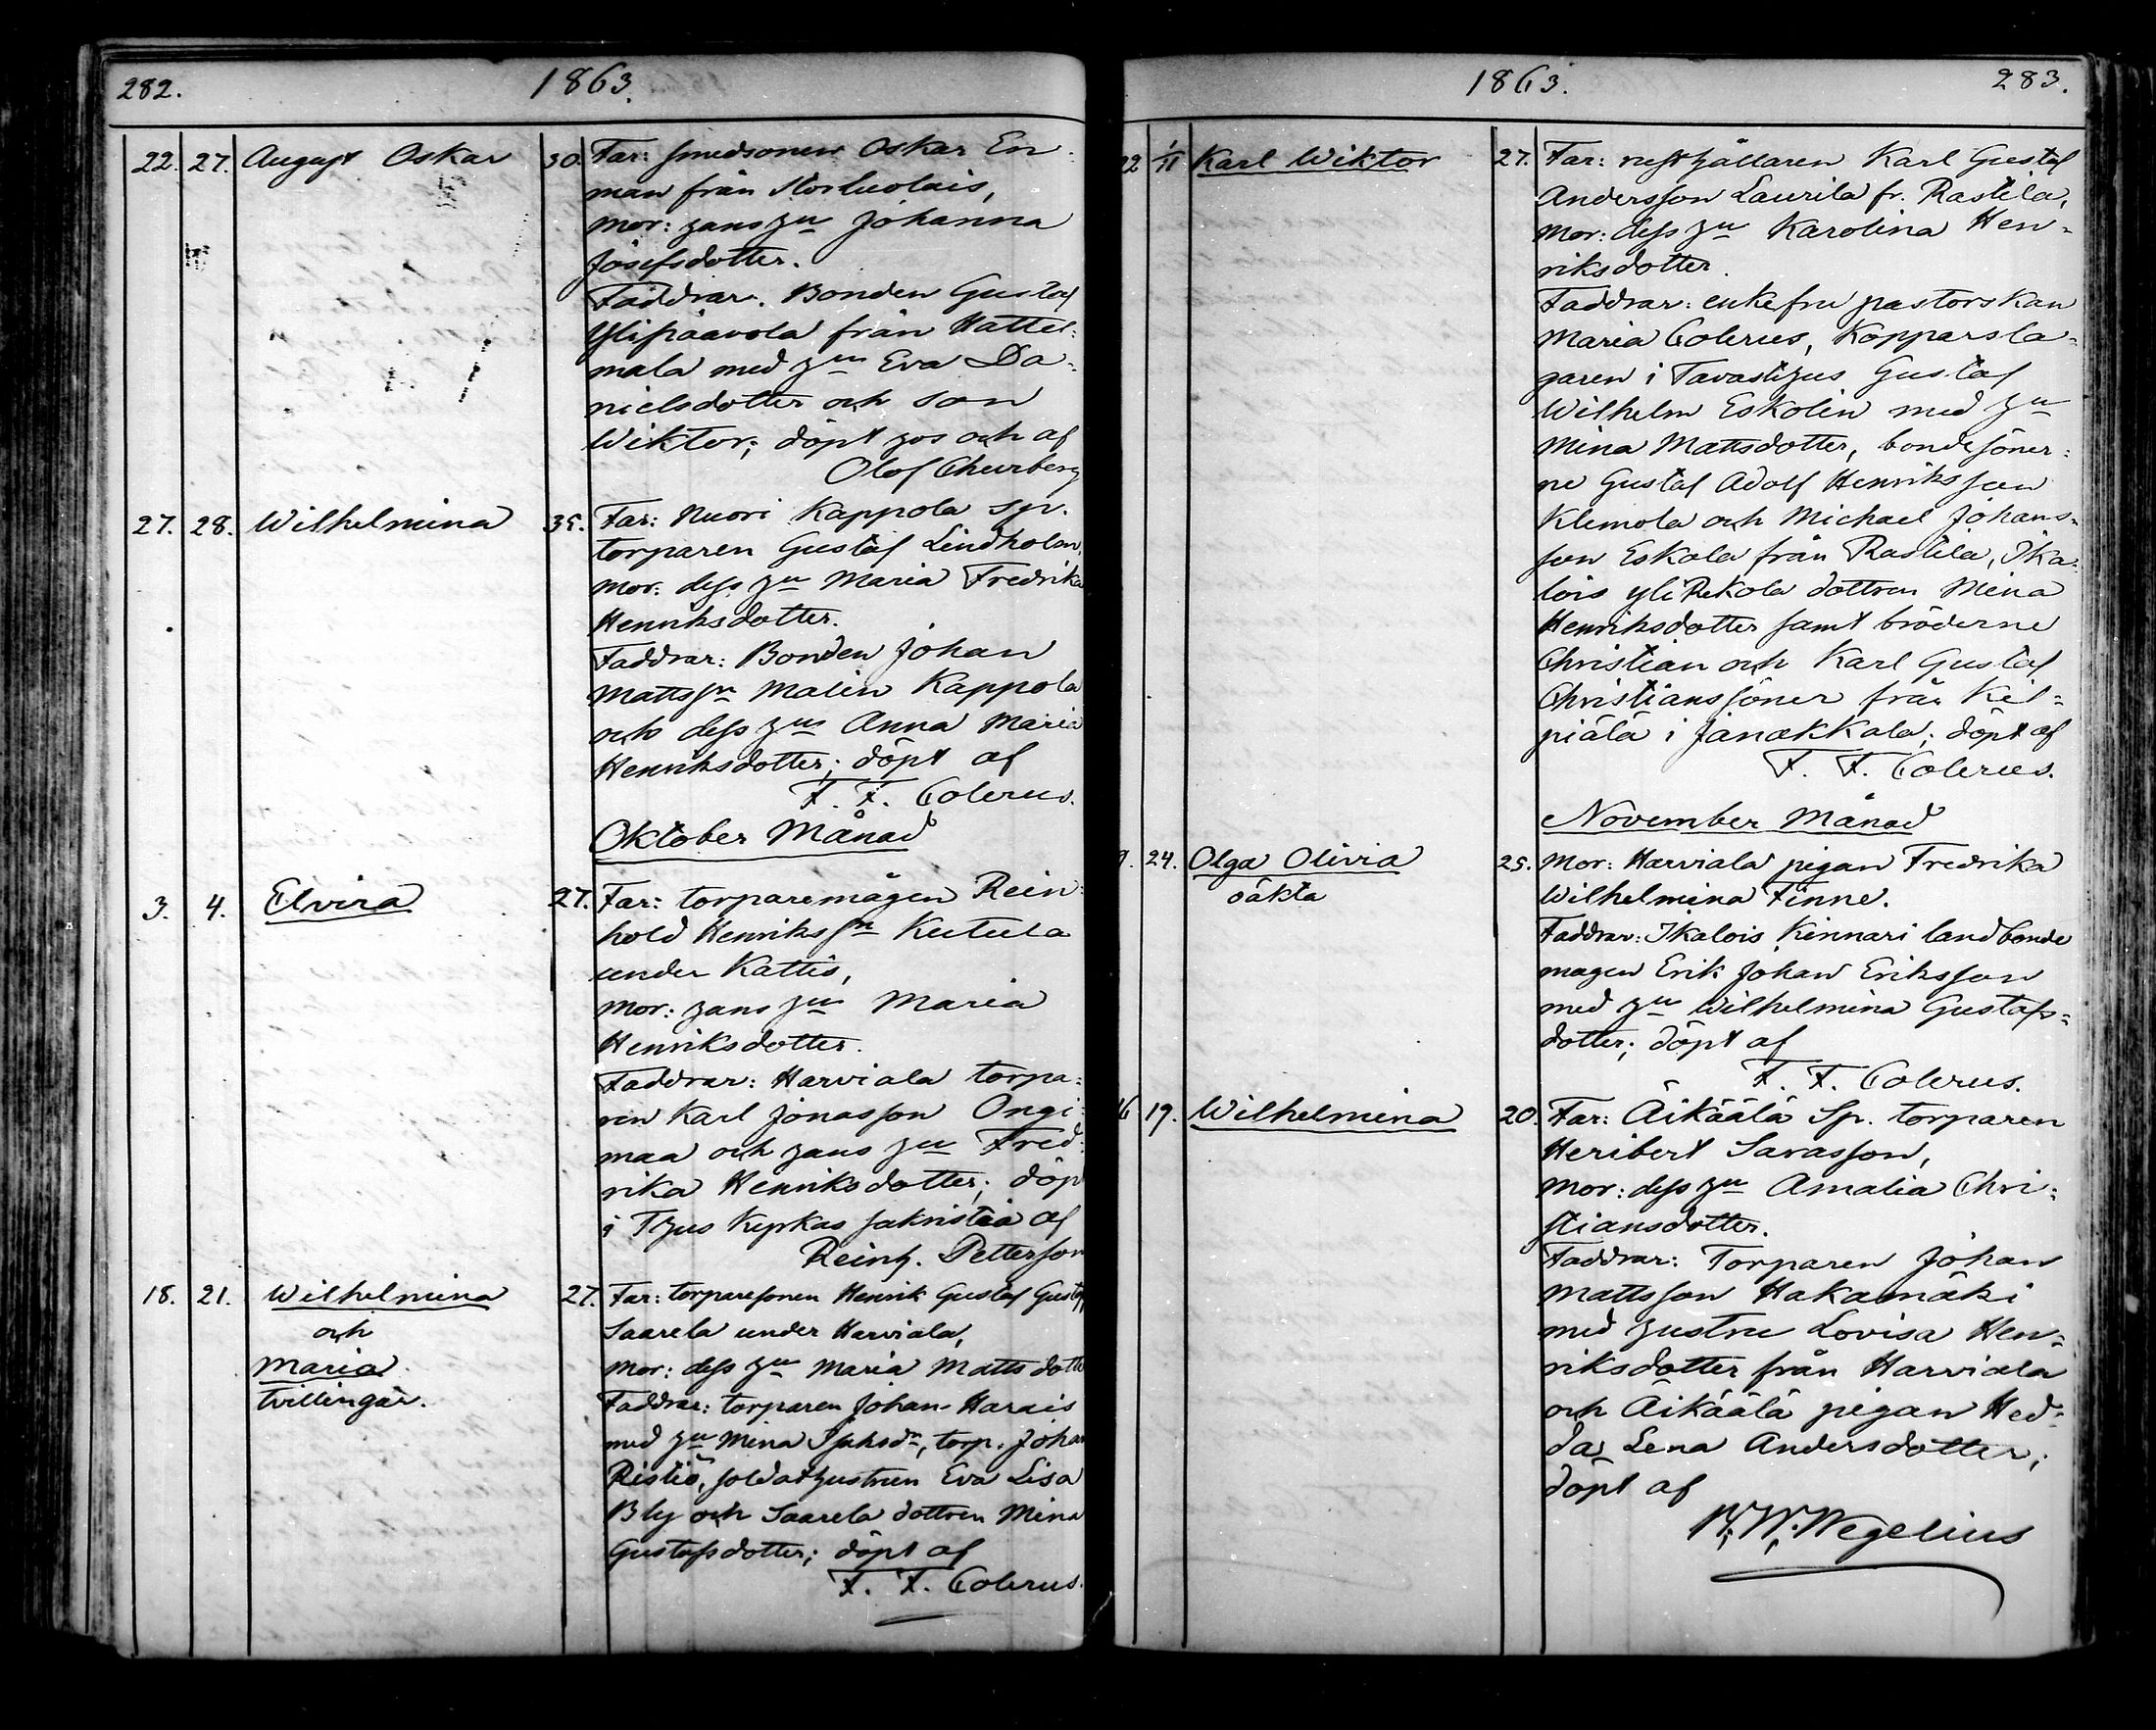 282. 1863.
22. 27. August Oskar 30. Far: smedsonen Oskar En-
man från Storluolais,
Mor: hans hu Johanna
Josefsdotter.
Faddrar. Bonden Gustaf
Ylipaavola från Hattel-
mala med hu Eva Da-
nielsdotter och son
Wiktor; döpt hos och af
Olof Churberg
27. 28. Wilhelmina 35. Far: Nuori Kappola sp.
torparen Gustaf Lindholm,
Mor: dess hu Maria Fredrika
Henriksdotter.
Faddrar: Bonden Johan
Mattssn Malin Kappola
och dess hu Anna Maria
Henriksdotter; döpt af
F. F. Colerus.
Oktober Månad
3. 4. Elvira 27. Far: torparemågen Rein-
hold Henrikssn Kutula
under Kattis,
Mor: hans hu Maria
Henriksdotter.
Faddrar: Harviala torpa-
ren Karl Jonasson Ongi-
maa och hans hu Fred-
rika Henriksdotter; döpt
i Thus Kyrkas sakristia af
Reinh. Petterson
18. 21. Wilhelmina 27. Far: torparesonen Henrik Gustaf
och Saarela under Harviala,
Maria Mor: dess hu Maria Mattsdotte
tvillingar. Faddrar: torparen Johan Harais
med hu Mina torp. Johan
Ristiö, soldathustrun Eva Lisa
Bly och Saarela dottren Mina
Gustafsdotter; döpt af
F. F. Colerus.
1863. 283.
22 1/11 Karl Wiktor 27. Far: rusthållaren Karl Gustaf
Andersson Laurila fr. Rastila,
Mor: dess hu Karolina Hen-
riksdotter.
Faddrar: enkefru pastorskan
Maria Colerus, Kopparsla-
garen i Tavasthus Gustaf
Wilhelm Eskolin med hu
Mina Mattsdotter, bondesöner-
ne Gustaf Adolf Henriksson
Klemola och Michael Johans-
son Eskola från Rastila, Ika-
lois yliRekola dottren Mina
Henriksdotter samt bröderne
Christian och Karl Gustaf
Christianssöner från Kil-
piälä i Janakkala; döpt af
F. F. Colerus.
November Månad
9. 24. Olga Olivia 25. Mor: Harviala pigan Fredrika
oäkta Wilhelmina Finne.
Faddrar: Ikalois Kinnari landbonde
magen Erik Johan Eriksson
med hu Wilhelmina Gustafs-
dotter; döpt af
F. F. Colerus.
16 19. Wilhelmina 20. Far: Äikäälä Sp. torparen
Heribert Savasson,
Mor: dess hu Amalia Chri-
stiansdotter.
Faddrar: Torparen Johan
Mattsson Hakamäki
med hustru Lovisa Hen-
riksdotter från Harviala
och Äikäälä pigan Hed-
da Lena Andersdotter;
döpt af
Wegelius